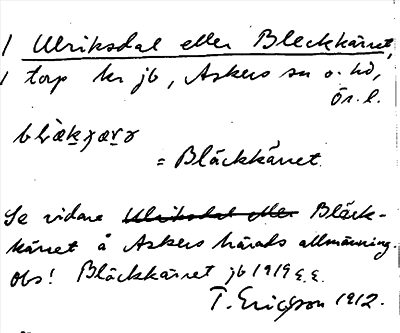 1 Ulriksdal eller Bleckkärret,
1 torp kr jb, Askers sn o. hd,
Ör. l.
blækχærə
= Bläckkärret.
Se vidare ~~Ulriksdal eller~~ Bläck-
kärret å Askers härads allmänning.
Obs! Bläckkärret jb 1919
T. Ericsson 1912.